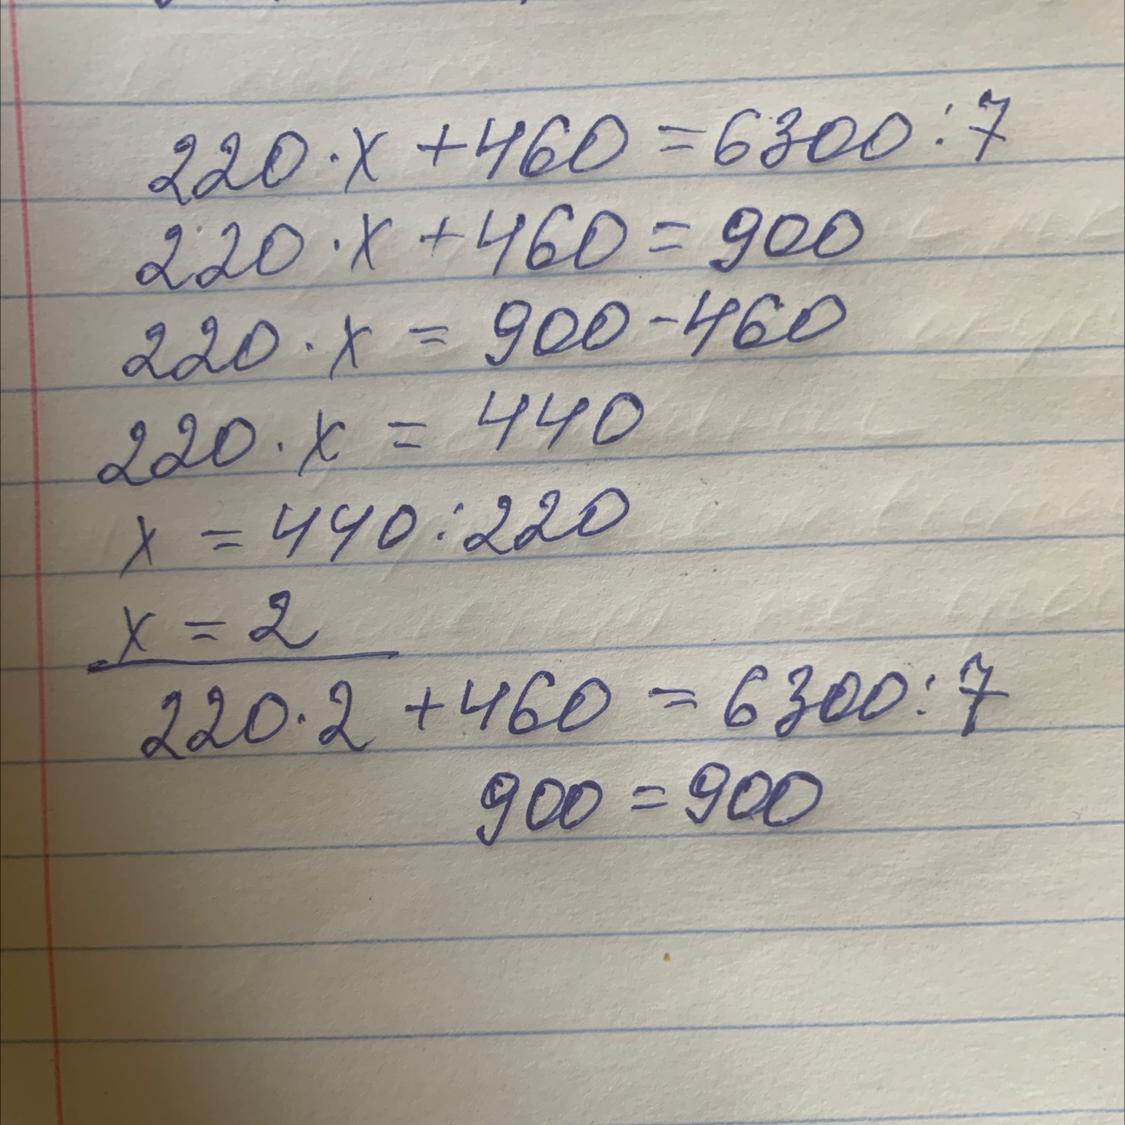 220·x+460=6300:7
220·x+460=900
220·x=900-460
220·x=440
x=440:220
x=2
220·2+460=6300:7
900=900